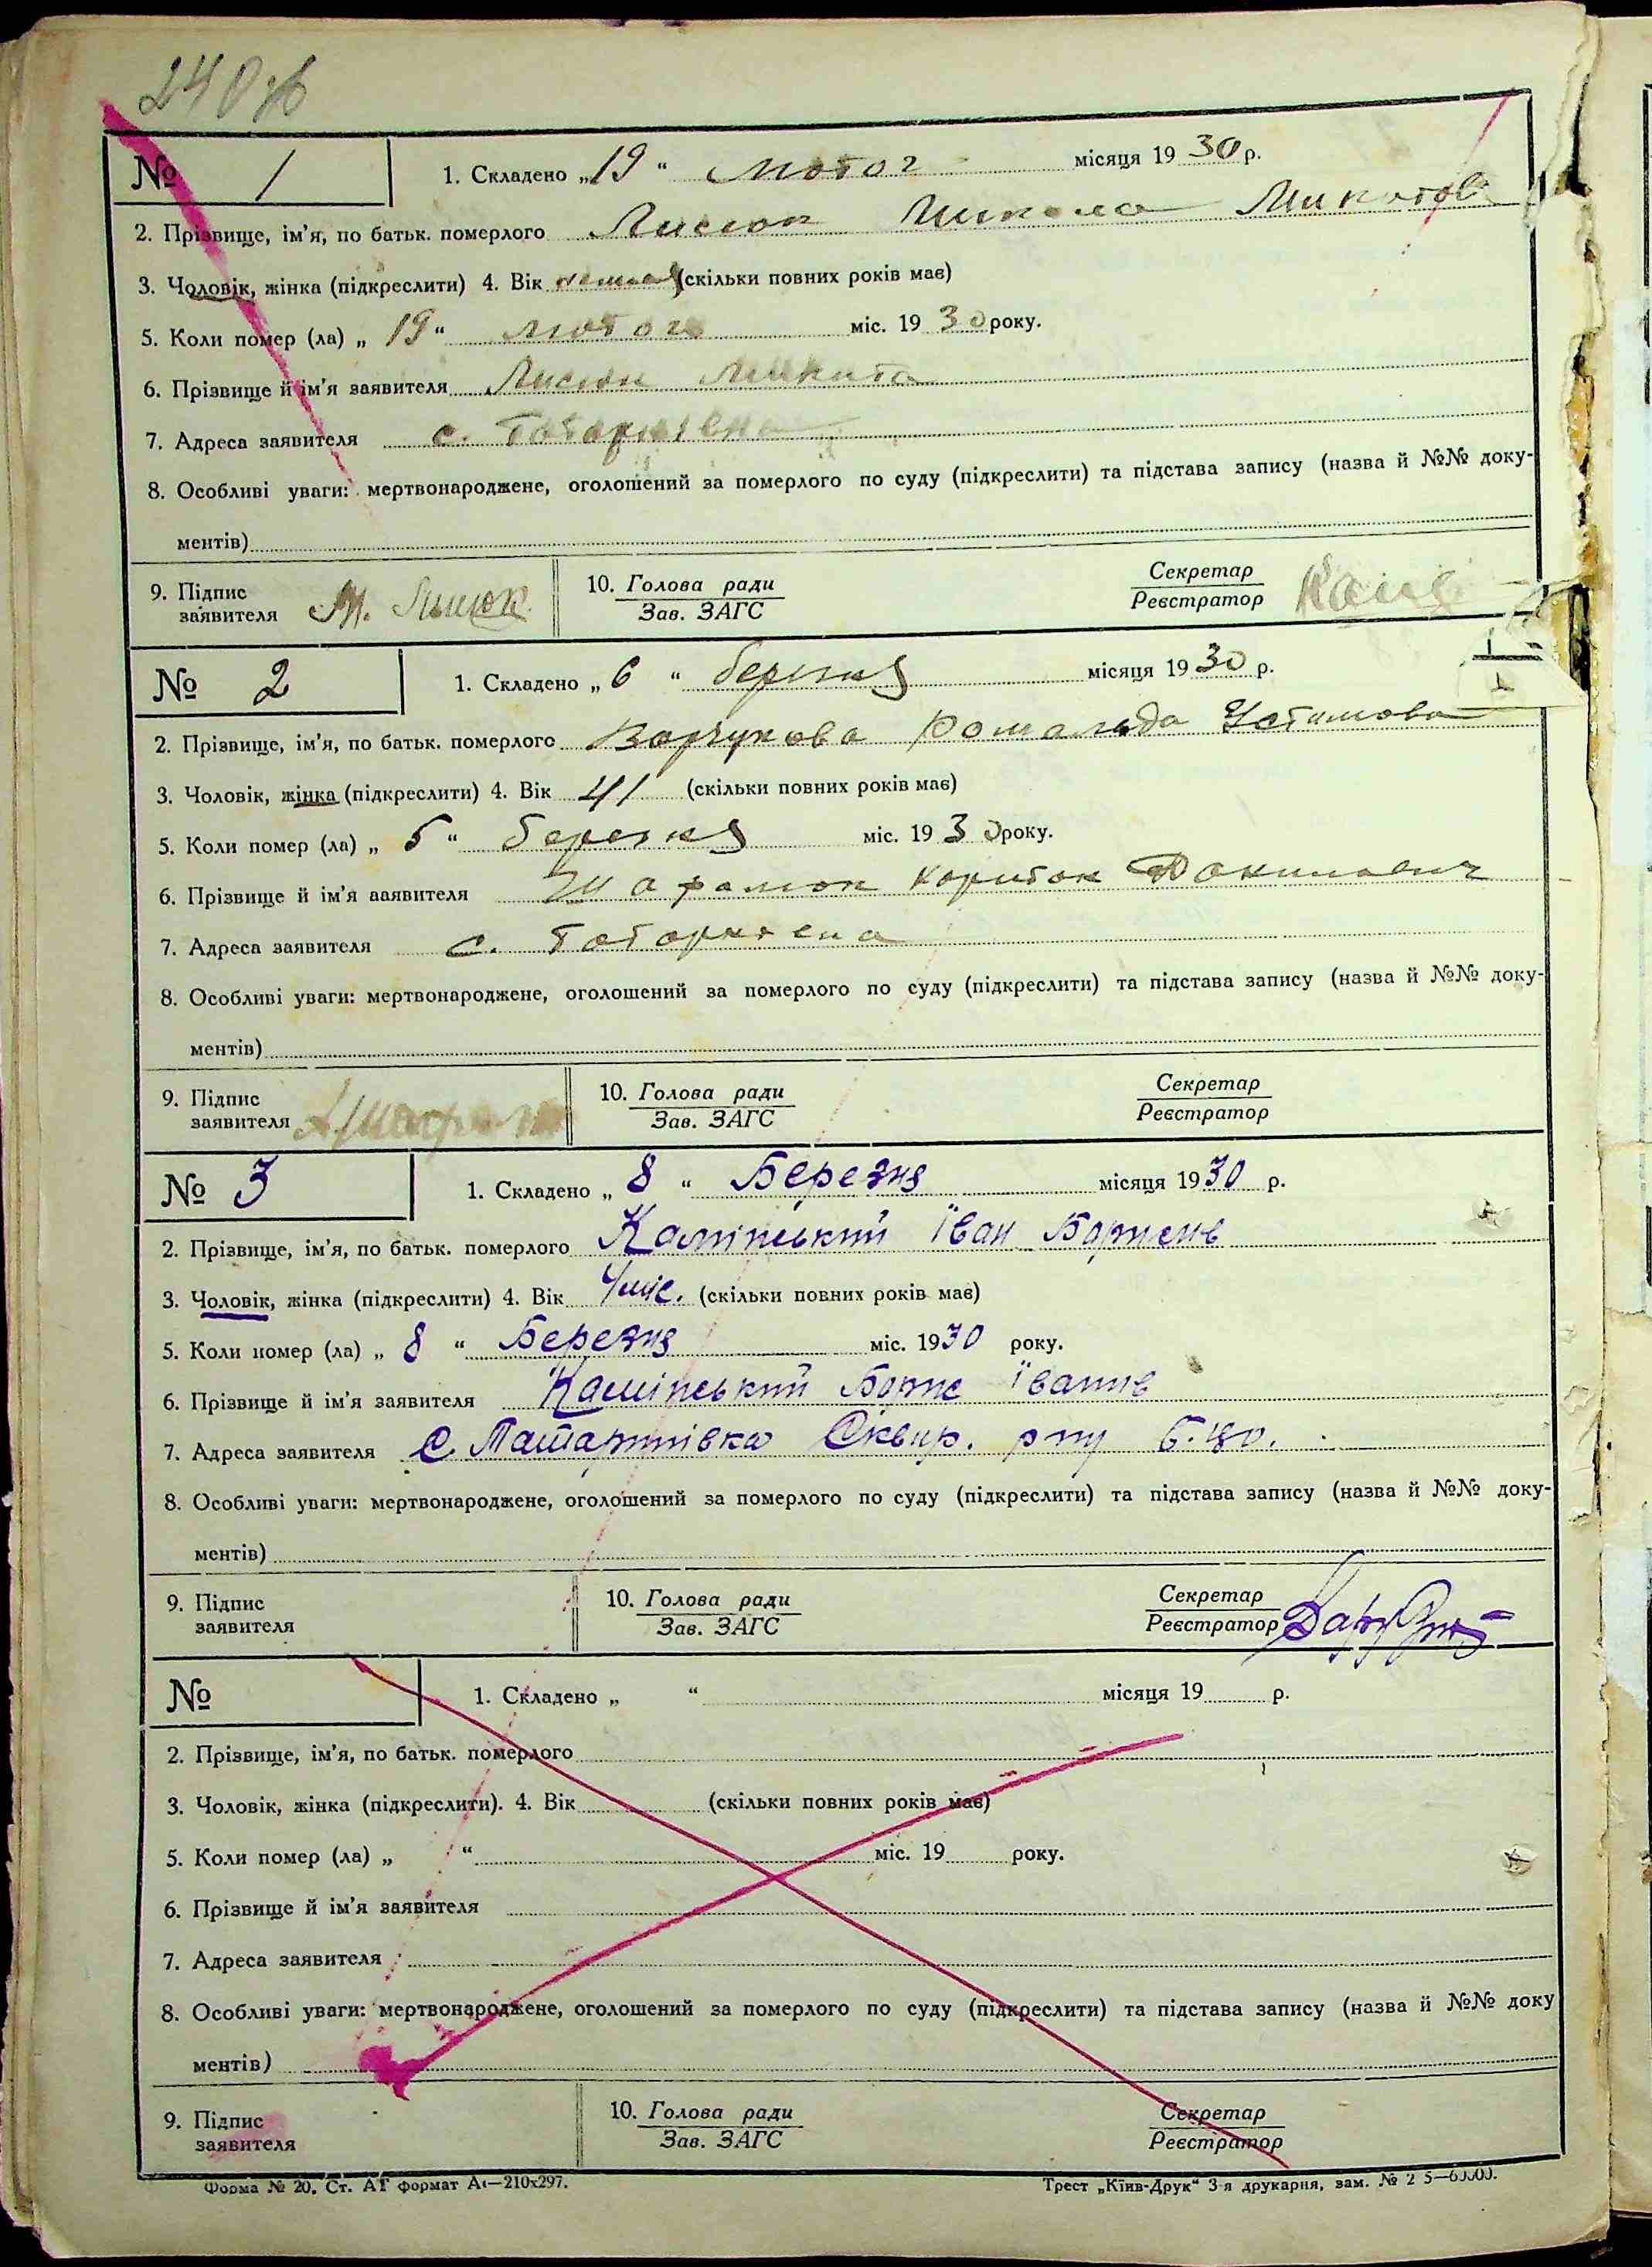 240
№ 1 1. Складено „19“ лютог місяця 1930 р.
2. Прізвище, ім'я, по батьк. померлого Лисюк Микола Микитов
3. Чоловік, жінка (підкреслити) 4. Вік (скільки повних років має)
5. Коли помер (ла) „19“ лютого міс. 1930 року.
6. Прізвище й ім'я заявителя Лисюк Микита
7. Адреса заявителя с.
8. Особливі уваги: мертвонароджене, оголошений за померлого по суду (підкреслити) та підстава запису (назва й №№ доку-
ментів)
9. Підпис 10. Голова ради Секретар
заявителя М. Лисюк Зав. ЗАГС Реєстратор
№ 2 1. Складено „6“ березня місяця 1930 р.
2. Прізвище, ім'я, по батьк. померлого Ромальда Устимова
3. Чоловік, жінка (підкреслити) 4. Вік 41 (скільки повних років має)
5. Коли помер (ла) „5“ березня міс. 1930 року.
6. Прізвище й ім'я заявителя
7. Адреса заявителя с.
8. Особливі уваги: мертвонароджене, оголошений за померлого по суду (підкреслити) та підстава запису (назва й №№ доку-
ментів)
9. Підпис 10. Голова ради Секретар
заявителя Зав. ЗАГС Реєстратор
№ 3 1. Складено „8“ Березня місяця 1930 р.
2. Прізвище, ім'я, по батьк. померлого Камінський Іван Борисів
3. Чоловік, жінка (підкреслити) 4. Вік 4 міс. (скільки повних років має)
5. Коли помер (ла) „8“ Березня міс. 1930 року.
6. Прізвище й ім'я заявителя Камінський Борис Іванив
7. Адреса заявителя с. Сквир. р-ну Б.Ц.о.
8. Особливі уваги: мертвонароджене, оголошений за померлого по суду (підкреслити) та підстава запису (назва й №№ доку-
ментів)
9. Підпис 10. Голова ради Секретар
заявителя Зав. ЗАГС Реєстратор
№ 1. Складено „ “ місяця 19 р.
2. Прізвище, ім'я, по батьк. померлого
3. Чоловік, жінка (підкреслити). 4. Вік (скільки повних років має)
5. Коли помер (ла) „ “ міс. 19 року.
6. Прізвище й ім'я заявителя
7. Адреса заявителя
8. Особливі уваги: мертвонароджене, оголошений за померлого по суду (підкреслити) та підстава запису (назва й №№ доку
ментів)
9. Підпис 10. Голова ради Секретар
заявителя Зав. ЗАГС Реєстратор
Форма № 20. Ст. АГ формат А₄—210х297. Трест „Київ-Друк“ 3-я друкарня, зам. №